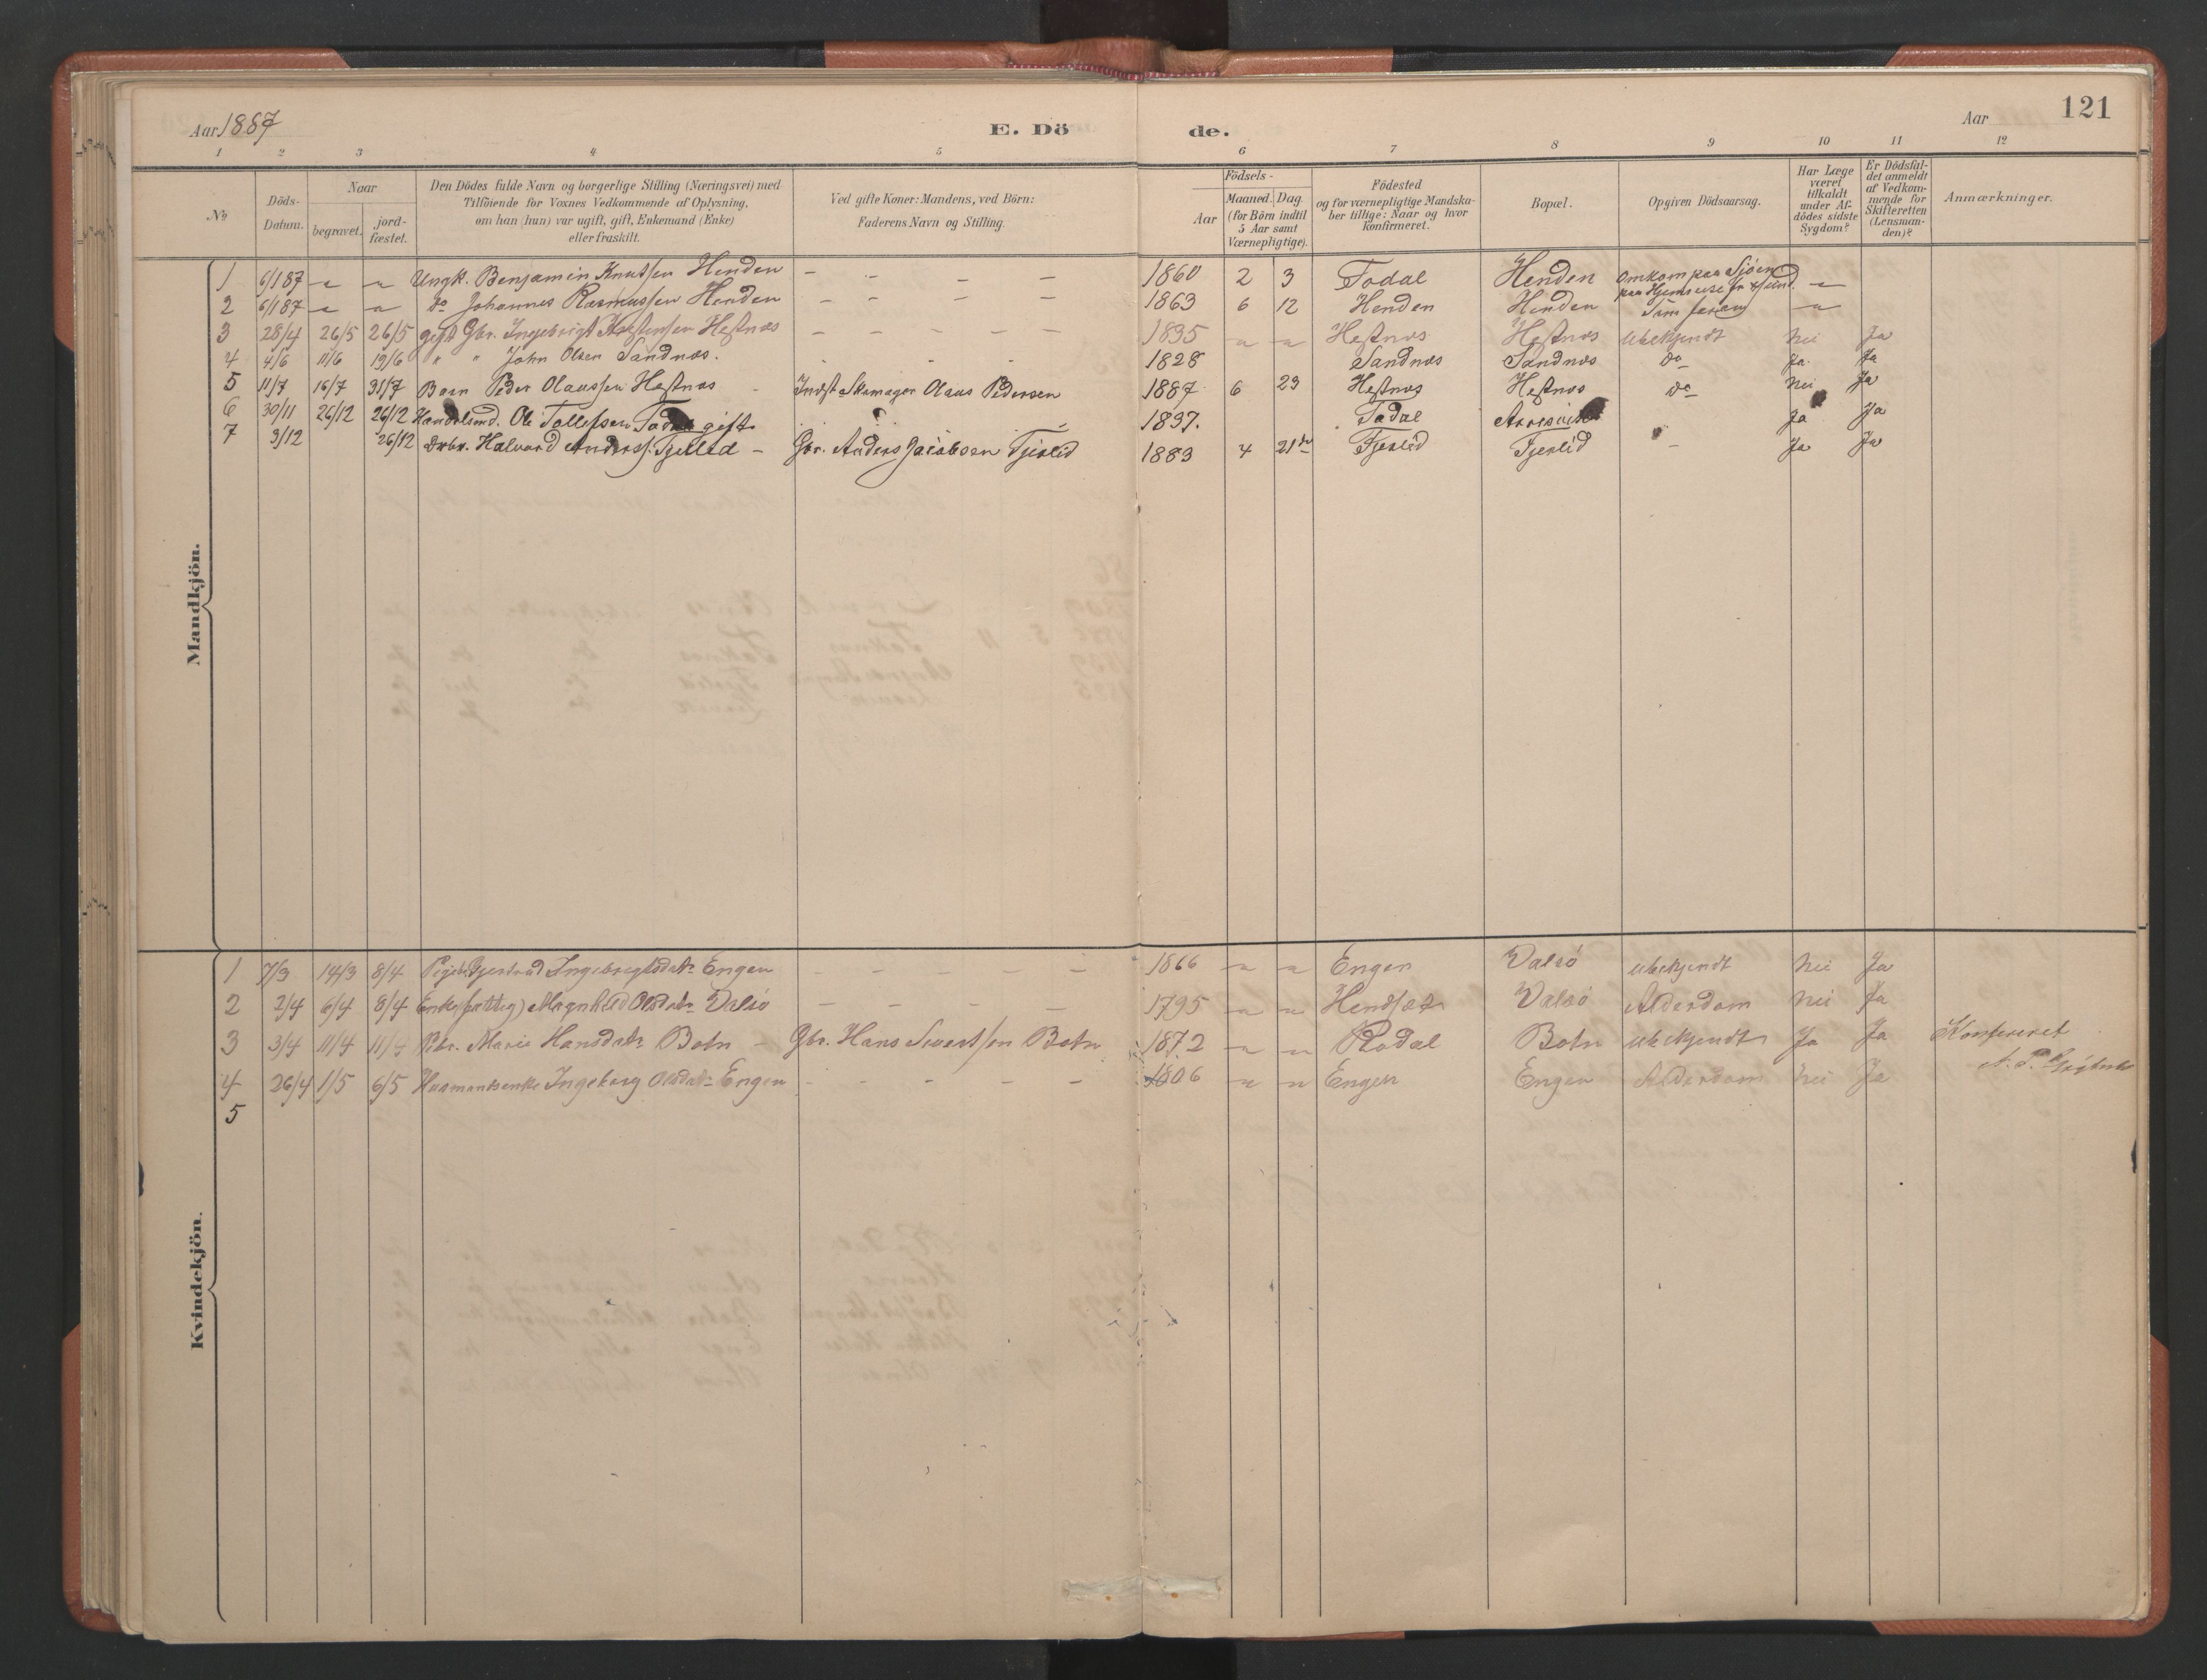 Aar 1887 E. Dö de. Aar 121
1 2 3 4 5 6 7 8 9 10 11 12
No
Döds-Datum.
Naar
begravet.
jord-fæstet.
Den Dödes fulde Navn og borgerlige Stilling (Næringsvei) med
Tilföiende for Voxnes Vedkommende af Oplysning,
om han (hun) var ugift, gift, Enkemand (Enke)
eller fraskilt.
Ved gifte Koner: Mandens, ved Börn:
Faderens Navn og Stilling.
Födsels-
Aar
Maaned. Dag.
(for Börn indtil
5 Aar samt
Værnepligtige).
Födested
og for værnepligtige Mandska-
ber tillige: Naar og hvor
konfirmeret.
Bopæl.
Opgiven Dödsaarsag.
Har Læge
været
tilkaldt
under Af-
dödes sidste
Sygdom?
Er Dödsfal-
det anmeldt
af Vedkom-
mende for
Skifteretten
(Lensman-
den)?
Anmærkninger.
Mandkjön.
1 6/1 87 - - Ungk. Benjamin Knutsen Henden - - - - 1860 2 3 Todal Henden Omkom paa Sjöen
paa Hjemreise fr. -
2 6/1 87 - - Do Johannes Rasmussen Henden - - - - 1863 6 12 Henden Henden -
3 28/4 26/5 26/5 gift Gbr. Ingebrigt Hestnes - - - - - 1835 - - Hestnes Hestnes Ubekjendt Nei Ja
4 4/6 11/6 19/6 " " John Olsen Sandnæs. - - - 1828 Sandnæs Sandnæs Do Ja Ja
5 11/7 16/7 31/7 Barn Peder Olaussen Hestnæs - Indst Skomager Olaus Pedersen 1887 6 23 Hestnæs Hestnæs Do Nei Ja
6 30/11 26/12 26/12 Handelsmd. Ole Tollefsen gift 1837. Todal Ja Ja
7 3/12 26/12 Halvard Anderss. Fjerlid - Gbr. Anders Jacobsen Fjerlid 1883 4 21de Fjerlid Fjerlid - Ja Ja
Kvindekjön.
1 7/3 14/3 8/4 Pige Gjertrud Ingebregtsdatr Engen - - - - - 1866 - - Engen Valsö Ubekjendt Nei Ja
2 2/4 6/4 8/4 Enke (fattig) Magnhild Olsdatr Valsö - - - - 1795 - - Hendset Valsö Alderdom Nei Ja
3 3/4 11/4 11/4 Marie Hansdatr Botn - Gbr. Hans Sivertsen Botn 1872 - - Rodal Botn Ubekjendt Ja Ja Konfereret
4 26/4 1/5 6/5 Husmandsenke Ingeborg Olsdatr Engen - - - - - 1806 - - Engen Engen Alderdom Nei Ja
5